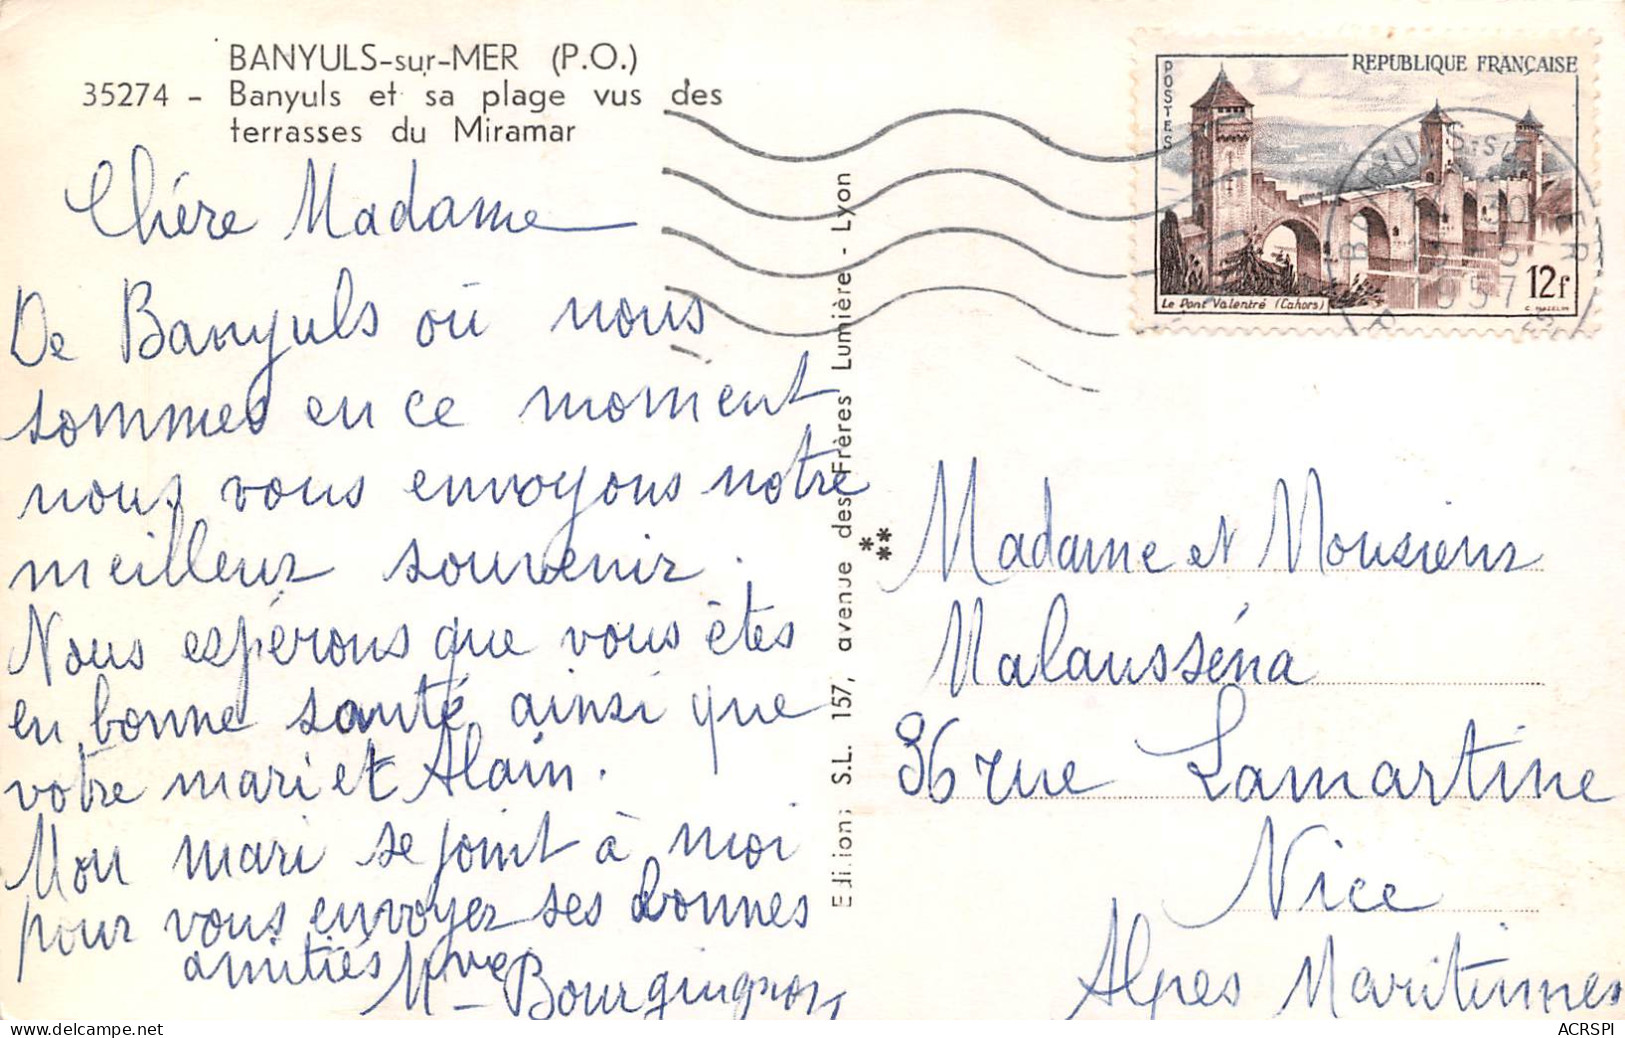 BANYULS-sur-MER (P.O.)
35274 - Banyuls et sa plage vus des
terrasses du Miramar
Chére Madame
De Banyuls où nous
sommes en ce moment
nous vous envoyons notre
meilleur souvenir.
Nous espérons que vous êtes
en bonne santé, ainsi que
votre mari et Alain.
Mon mari se joint à moi
pour vous envoyer ses bonnes
amitiés
Mme Bourguignon
Edition: S.L. 157, avenue des Frères Lumière - Lyon
***
REPUBLIQUE FRANÇAISE
POSTES
12f
Le Pont Valentré (Cahors)
1957
Madame et Monsieur
Malausséna
36 rue Lamartine
Nice
Alpes Maritimes
ACRSPI